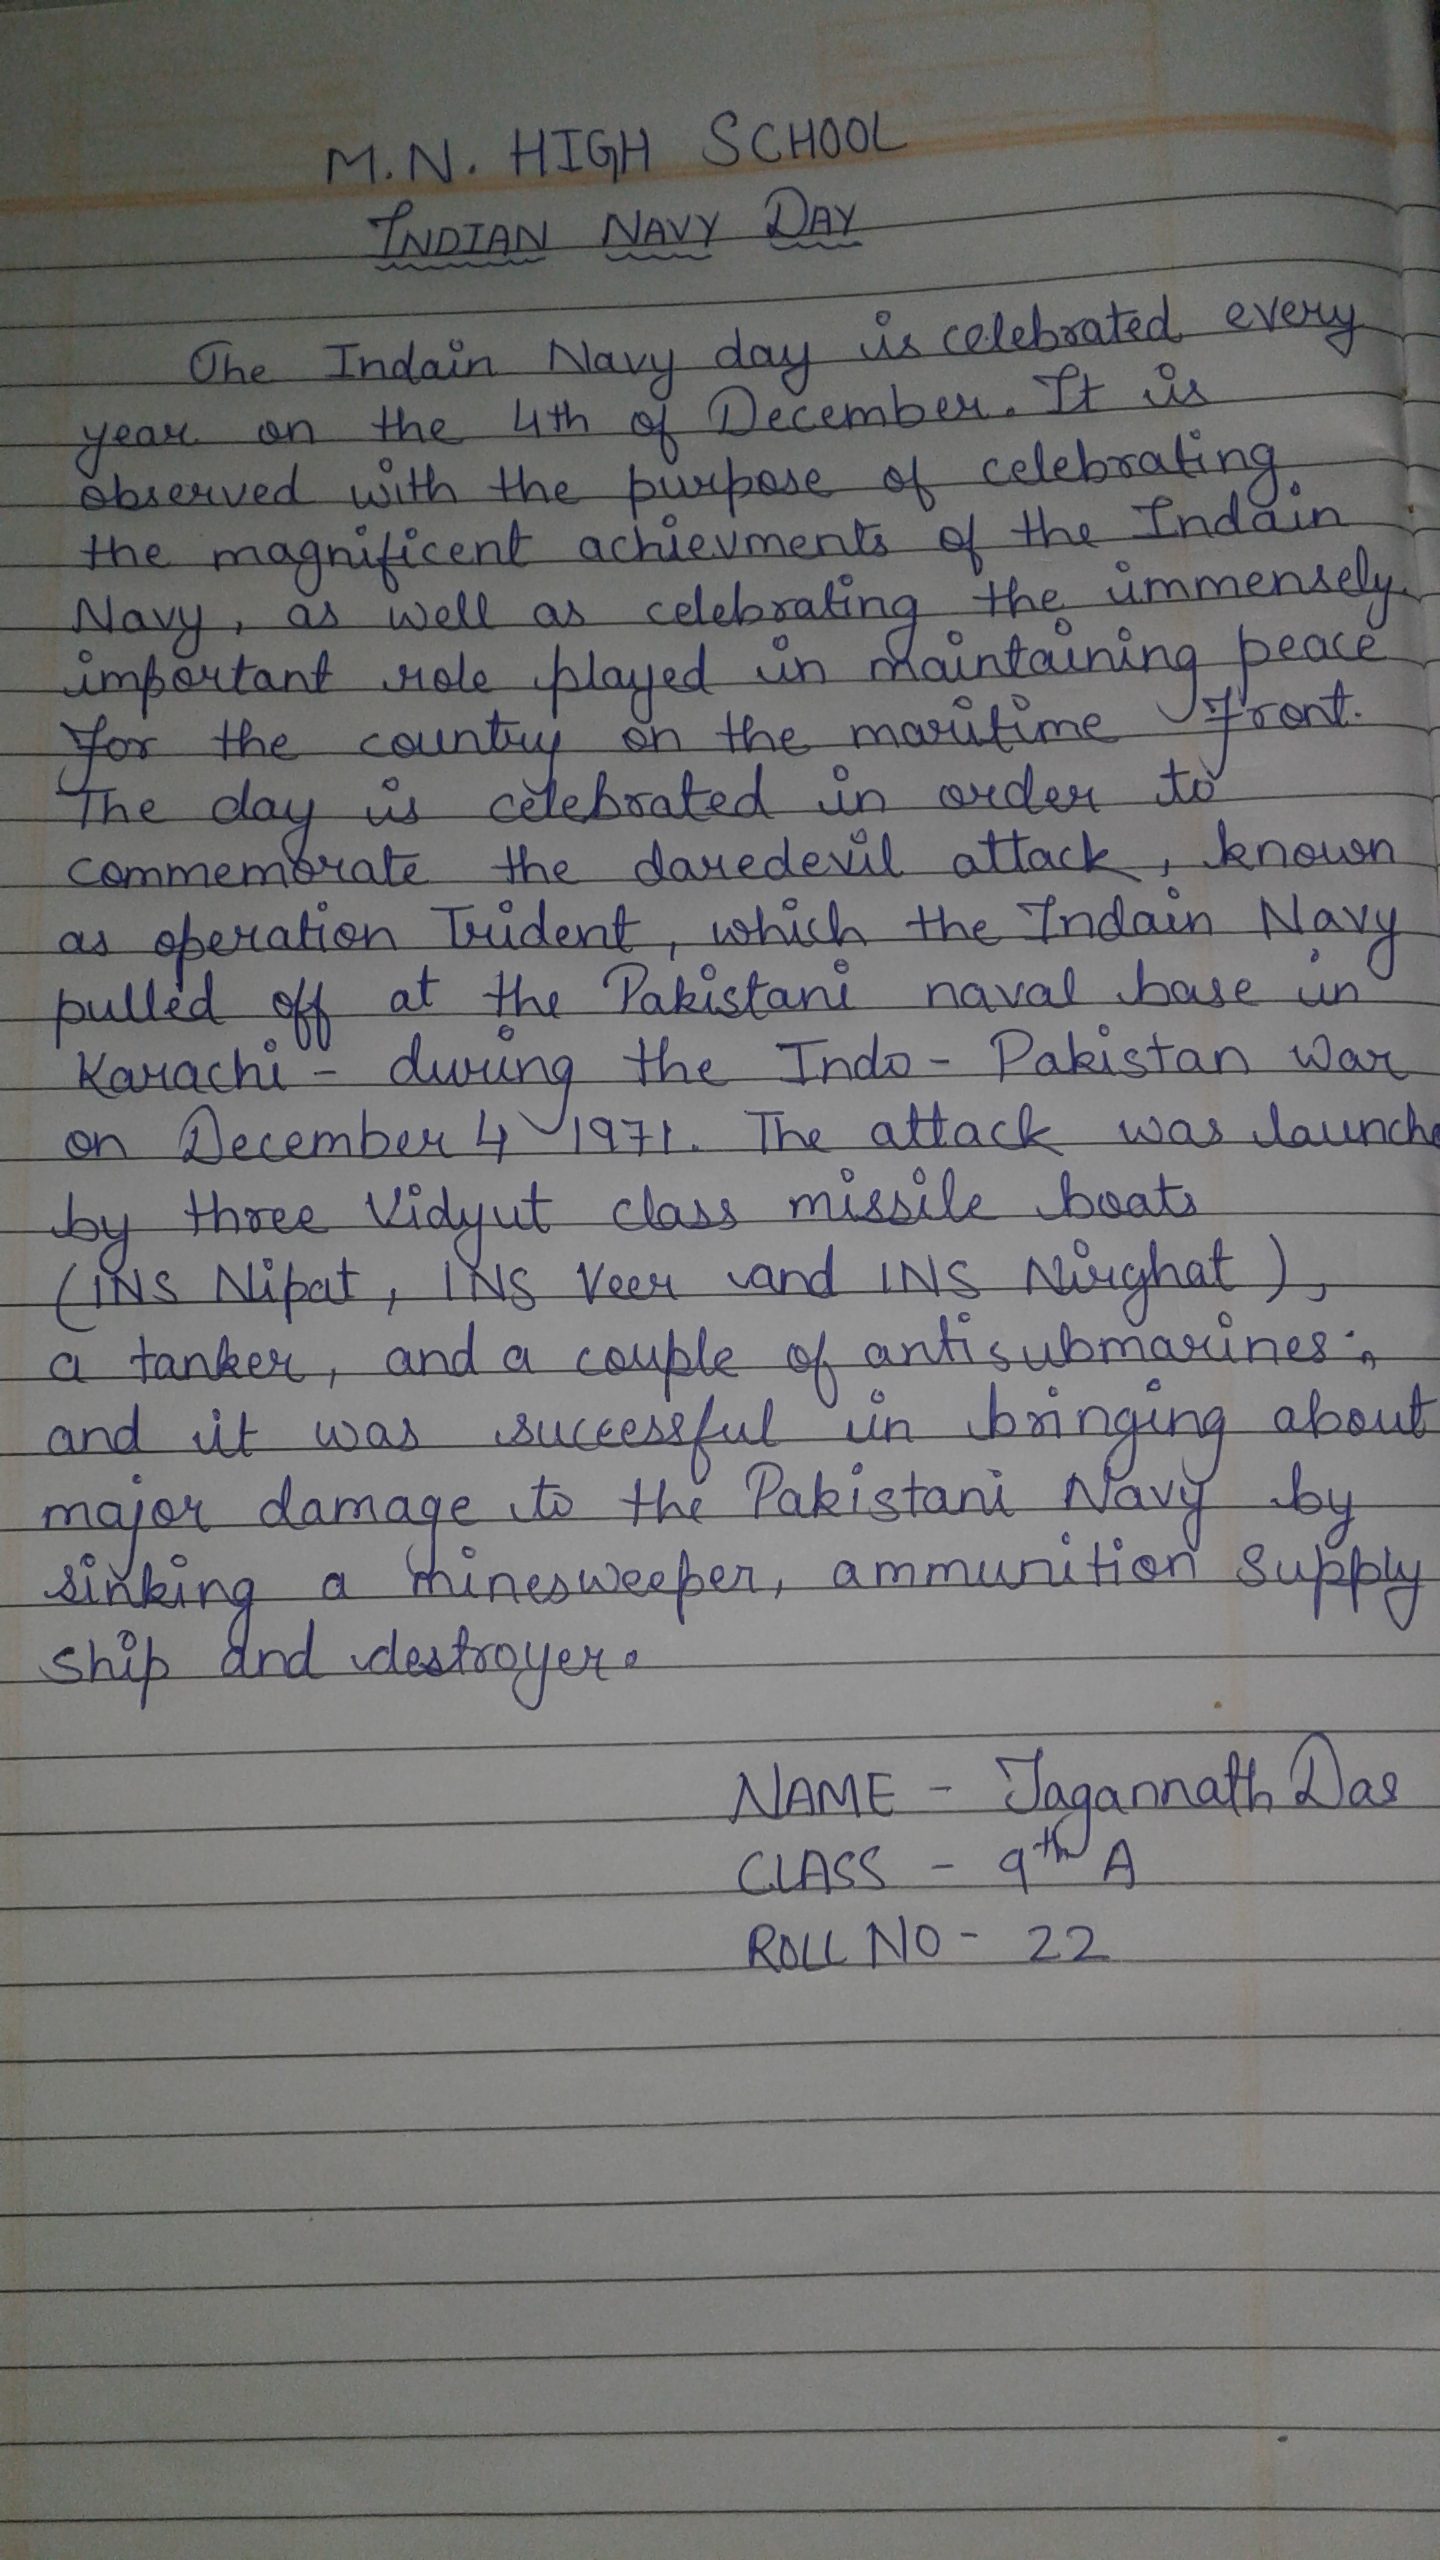 M.N. HIGH SCHOOL
INDIAN NAVY DAY
The Indain Navy day is celebrated every
year on the 4th of December. It is
observed with the purpose of celebrating
the magnificent achievments of the Indain
Navy, as well as celebrating the immensely
important role played in maintaining peace
for the country on the maritime front.
The day is celebrated in order to
commemorate the daredevil attack, known
as operation Trident, which the Indain Navy
pulled off at the Pakistani naval base in
Karachi - during the Indo - Pakistan war
on December 4 1971. The attack was launche
by three Vidyut class missile boats
(INS Nipat, INS Veer and INS Nirghat),
a tanker, and a couple of antisubmarines;
and it was successful in bringing about
major damage to the Pakistani Navy by
sinking a minesweeper, ammunition supply
ship and destroyer.
NAME - Jagannath Das
CLASS - 9th A
ROLL NO - 22